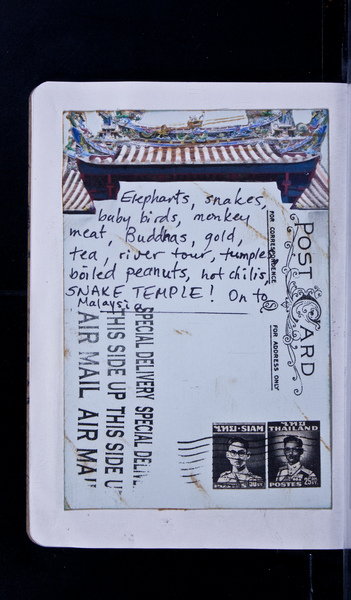 Elephants, snakes,
baby birds, monkey
meat, Buddhas, gold,
tea, river tour, temples
boiled peanuts, hot chilis,
SNAKE TEMPLE! On to
Malaysia
POST CARD
FOR CORRESPONDENCE
FOR ADDRESS ONLY
SPECIAL DELIVERY SPECIAL DELIV
THIS SIDE UP THIS SIDE U
AIR MAIL AIR MAI
ไทย-SIAM
ไทย
THAILAND
POSTES 25